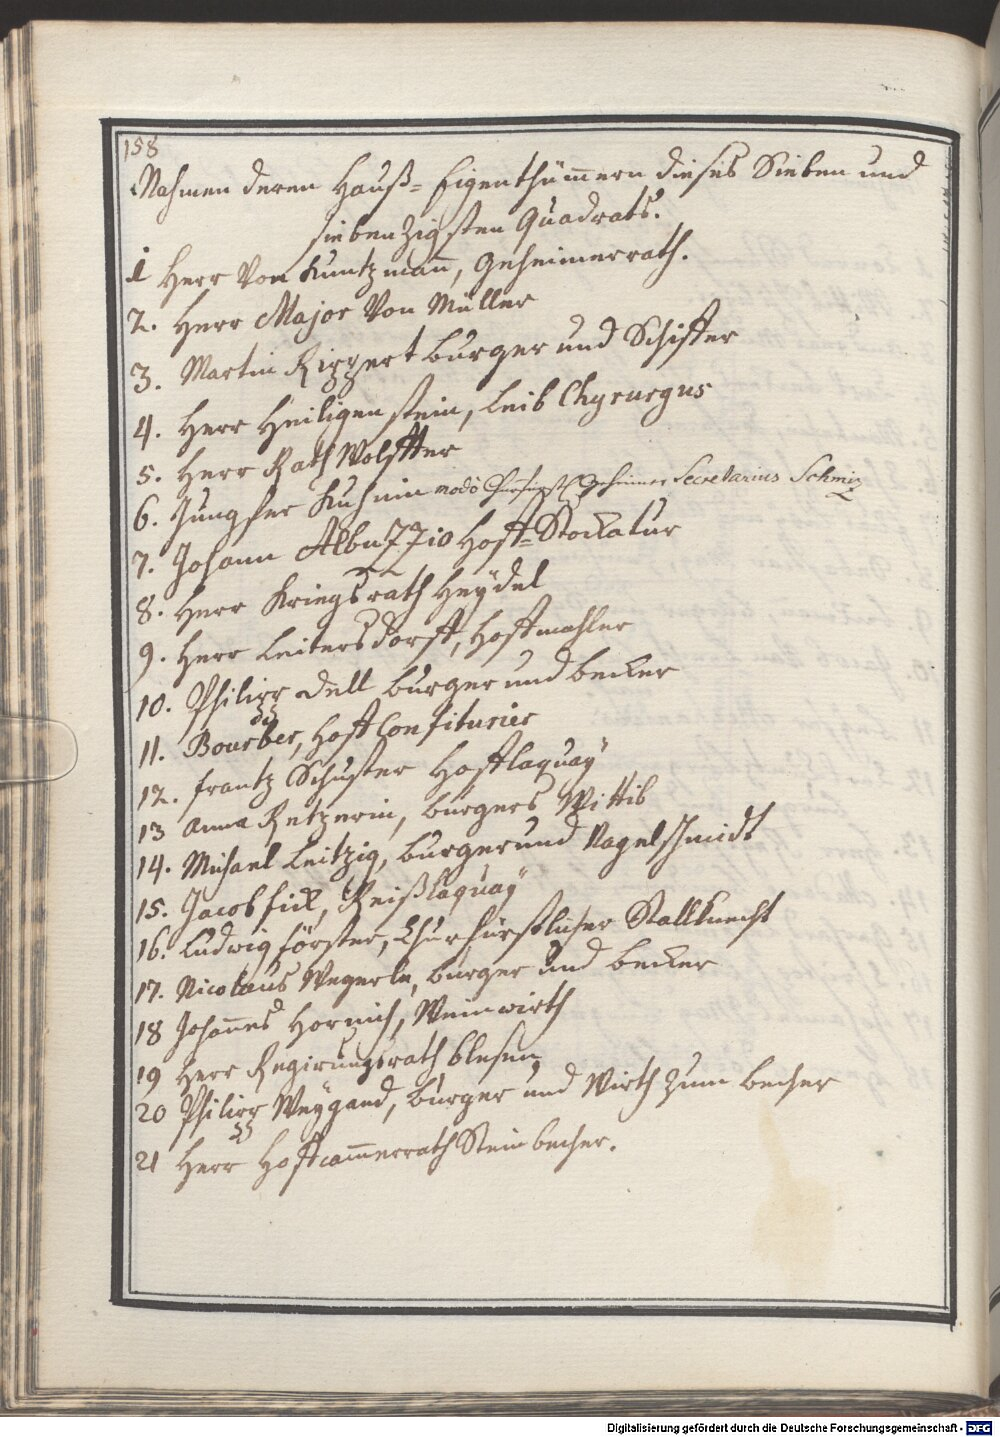 158
Nahmen deren Hauß=Eigenthümmern dieses Sieben und
siebenzigsten Quadrats.
1 Herr Von Kuntzmañ, Geheimerrath.
2. Herr Major Von Müller
3. Martin Rippert burger und Schiffer
4. Herr Heiligenstein, Leib Chyrurgus
5. Herr Rath Wolffter
6. Jungfer Kuhnin modo Geheimer Secretarius Schmiz
7. Johann Albuzzio Hoff=Stockatur
8. Herr Kriegsrath Heÿdel
9. Herr Leitersdorff, Hoffmahler
10. Philipp Dell burger und becker
11. Hoff Confiturier
12. Frantz Schuster Hofflaquaÿ
13 Anna Retzerin, burgers Wittib
14. Michael Leitzig, burger und Nagelschmidt
15. Jacob Fick, Reißlaquaÿ
16. Ludwig Förster, Churfürstlicher Stallknecht
17. Nicolaus Wegerle, burger und becker
18 Johañes Hornich, Weinwirth
19 Herr Regirungsrath blesen,
20 Philipp Weÿgand, burger und Wirth zum becher
21 Herr Hoffcam̄errath Steinbecher.
Digitalisierung gefördert durch die Deutsche Forschungsgemeinschaft - DFG